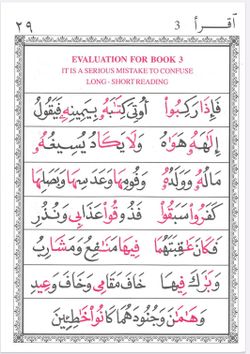 اقرأ 3 ٢٩
EVALUATION FOR BOOK 3
IT IS A SERIOUS MISTAKE TO CONFUSE
LONG - SHORT READING
فَإِذَا رَكِبُوا أُوتِيَ كِتَٰبَهُۥ بِيَمِينِهِۦ فَيَقُولُ
إِلَٰهَهُۥ هَوَاهُ وَلَا يَكَادُ يُسِيغُهُۥ
مَالُهُۥ وَوَلَدُهُۥ وَفُومِهَا وَعَدَسِهَا وَبَصَلِهَا
كَفَرُوا سَبَقُوا فَذُوقُوا عَذَابِي وَنُذُرِ
فَكَانَ عَٰقِبَتَهُمَا فِيهَا مَنَٰفِعُ وَمَشَارِبُ
وَبَٰرَكَ فِيهَا خَافَ مَقَامِي وَخَافَ وَعِيدِ
وَهَٰمَٰنَ وَجُنُودَهُمَا كَانُوا خَٰطِئِينَ